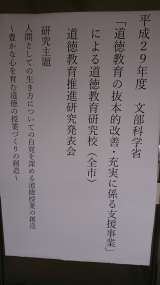 平成２９年度　文部科学省
「道徳教育の抜本的改善・充実に係る支援事業」
による道徳教育研究校〈全市〉
道徳教育推進研究発表会
研究主題
人間としての生き方についての自覚を深める道徳授業の創造
～豊かな心を育む道徳の授業づくりの創造～